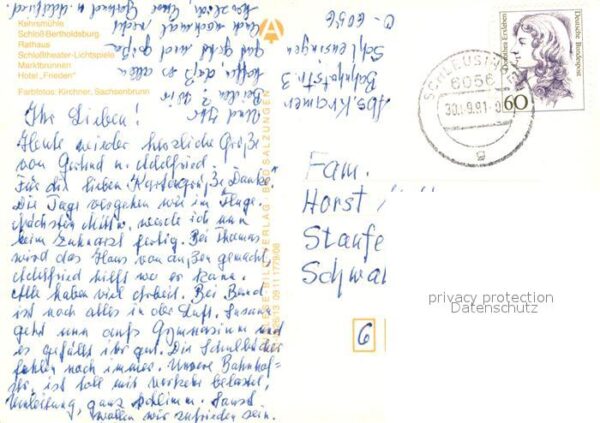 Kehrsmühle
Schloß-Bertholdsburg
Rathaus
Schloßtheater-Lichtspiele
Marktbrunnen
Hotel „Frieden"
Farbfotos: Kirchner, Sachsenbrunn
Ihr Lieben!
Heute wieder herzliche Grüße
von Gerlind u. Adelfried.
Für die lieben Kartengrüße, Danke
Die Tage vergehen wie im Fluge.
Nächsten Mittw. werde ich nun
beim Zahnarzt fertig. Bei Thomas
wird das Haus von außen gemacht
Adelfried hilft wo er kann.
Alle haben viel Arbeit. Bei Bernd
ist noch alles in der Luft. Susann
geht nun aufs Gymnasium und
es gefällt ihr gut. Die Schulbücher
fehlen noch immer. Unsere Bahnhof-
str. ist toll mit Verkehr belastet,
Umleitung, ganz schlimm. Sonst
wollen wir zufrieden sein.
Und Ihr
hoffe, daß es allen
gut geht und grüßen
Euch nochmal recht
herzlich, Eure
u. Adelfried
Abs. Kramer
Bahnhofstr. 3
Schleusingen
O-6056
BILD VERLAG BAD SALZUNGEN
Dorothea Erxleben
Deutsche Bundespost
60
SCHLEUSINGEN
6056
30.-9.91-9
a
Fam.
Horst
Staufe
Schwa
6
privacy protection
Datenschutz